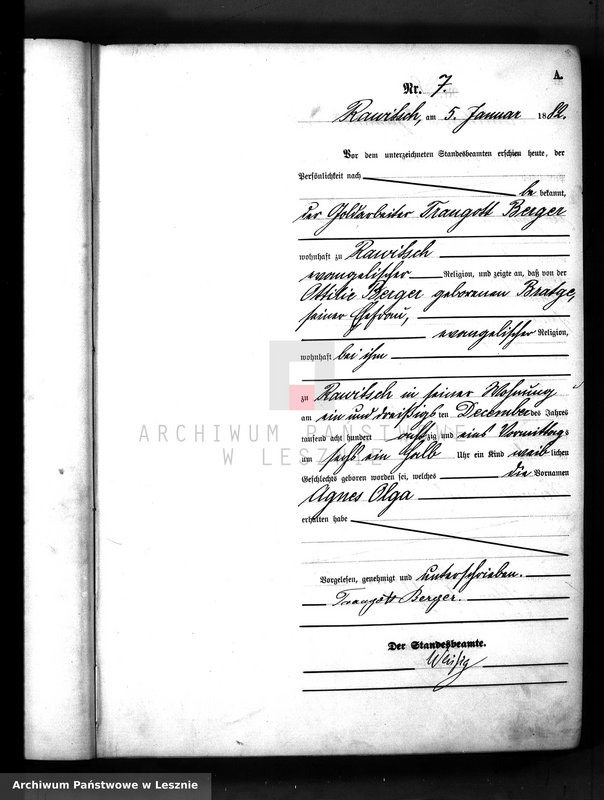 A.
Nr. 7.
Rawitsch, am 5. Januar 1882.
Vor dem unterzeichneten Standesbeamten erschien heute, der
Persönlichkeit nach
be kannt,
der Goldarbeiter Traugott Berger
wohnhaft zu Rawitsch
evangelischer Religion, und zeigte an, daß von der
Ottilie Berger geborenen Bratge,
seiner Ehefrau,
evangelischer Religion,
wohnhaft bei ihm
zu Rawitsch in seiner Wohnung
am ein und dreißigs ten December des Jahres
tausend acht hundert acht zig und eins Vormittags
um sechs ein halb Uhr ein Kind weib lichen
Geschlechts geboren worden sei, welches die Vornamen
Agnes Olga
erhalten habe
Vorgelesen, genehmigt und unterschrieben.
Traugott Berger.
Der Standesbeamte.
ARCHIWUM PAŃSTWOWE
W LESZNIE
Archiwum Państwowe w Lesznie